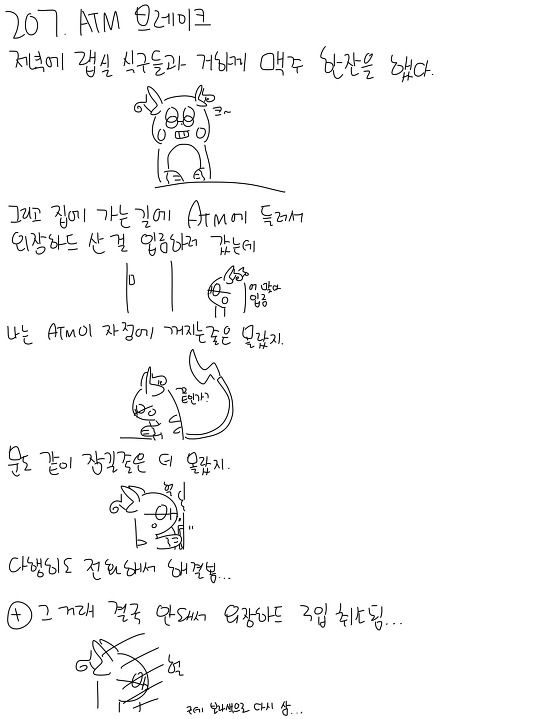 207. ATM 브레이크
저녁에 랩실 식구들과 거하게 맥주 한잔을 했다.
크~
그리고 집에 가는 길에 ATM에 들러서
외장하드 산 걸 입금하러 갔는데
어 맞다
입금
나는 ATM이 자정에 꺼지는줄은 몰랐지.
문도 같이 잠길줄은 더 몰랐지.
헉
다행히도 전화해서 해결봄...
+ 그 거래 결국 안돼서 외장하드 구입 취소됨...
헐
근데 보라색으로 다시 삼...